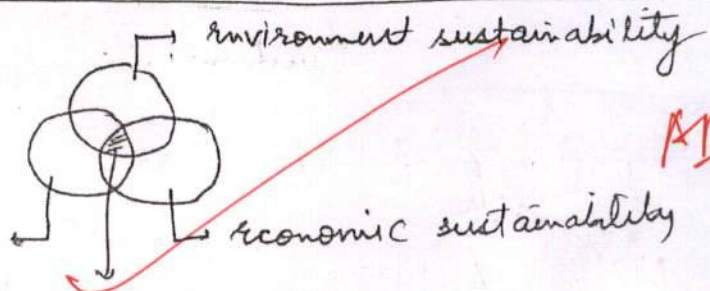 environment sustainability
economic sustainability